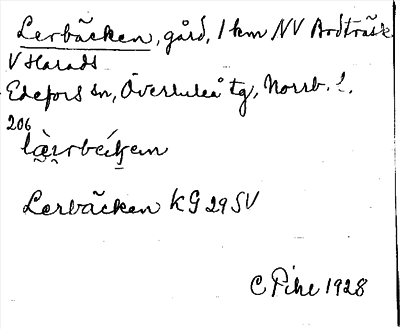 Lerbäcken, gård, 1 km NV Bodträsk
V Harads
Edefors sn, Överluleå tg, Norrb. l.
206
Lerbäcken KG 29 SV
C Pihl 1928